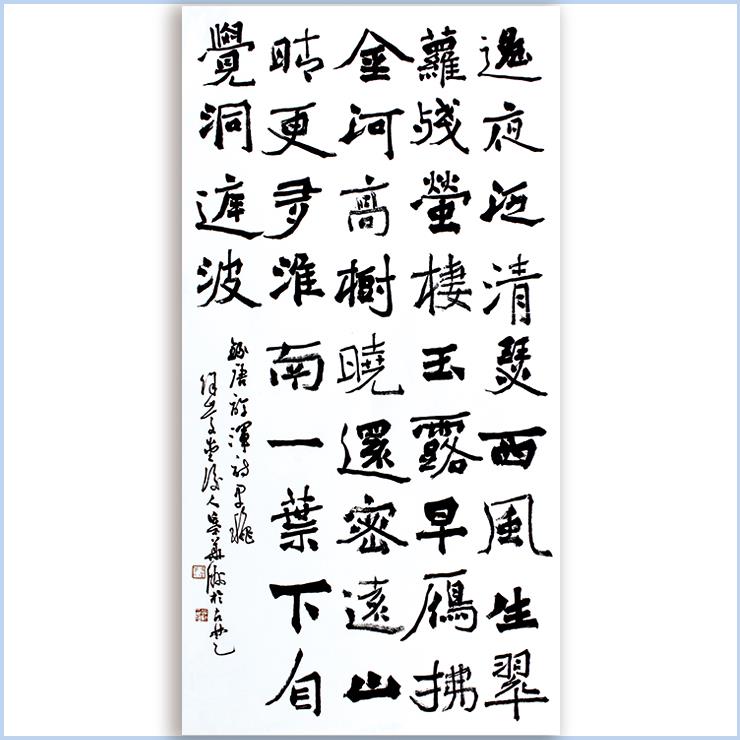 遙夜泛清瑟西風生翠
蘿殘螢棲玉露早鴈拂
金河高樹曉還密遠山
晴更多淮南一葉下自
覺洞庭波
錄唐許渾詩早秋
後人吳華於